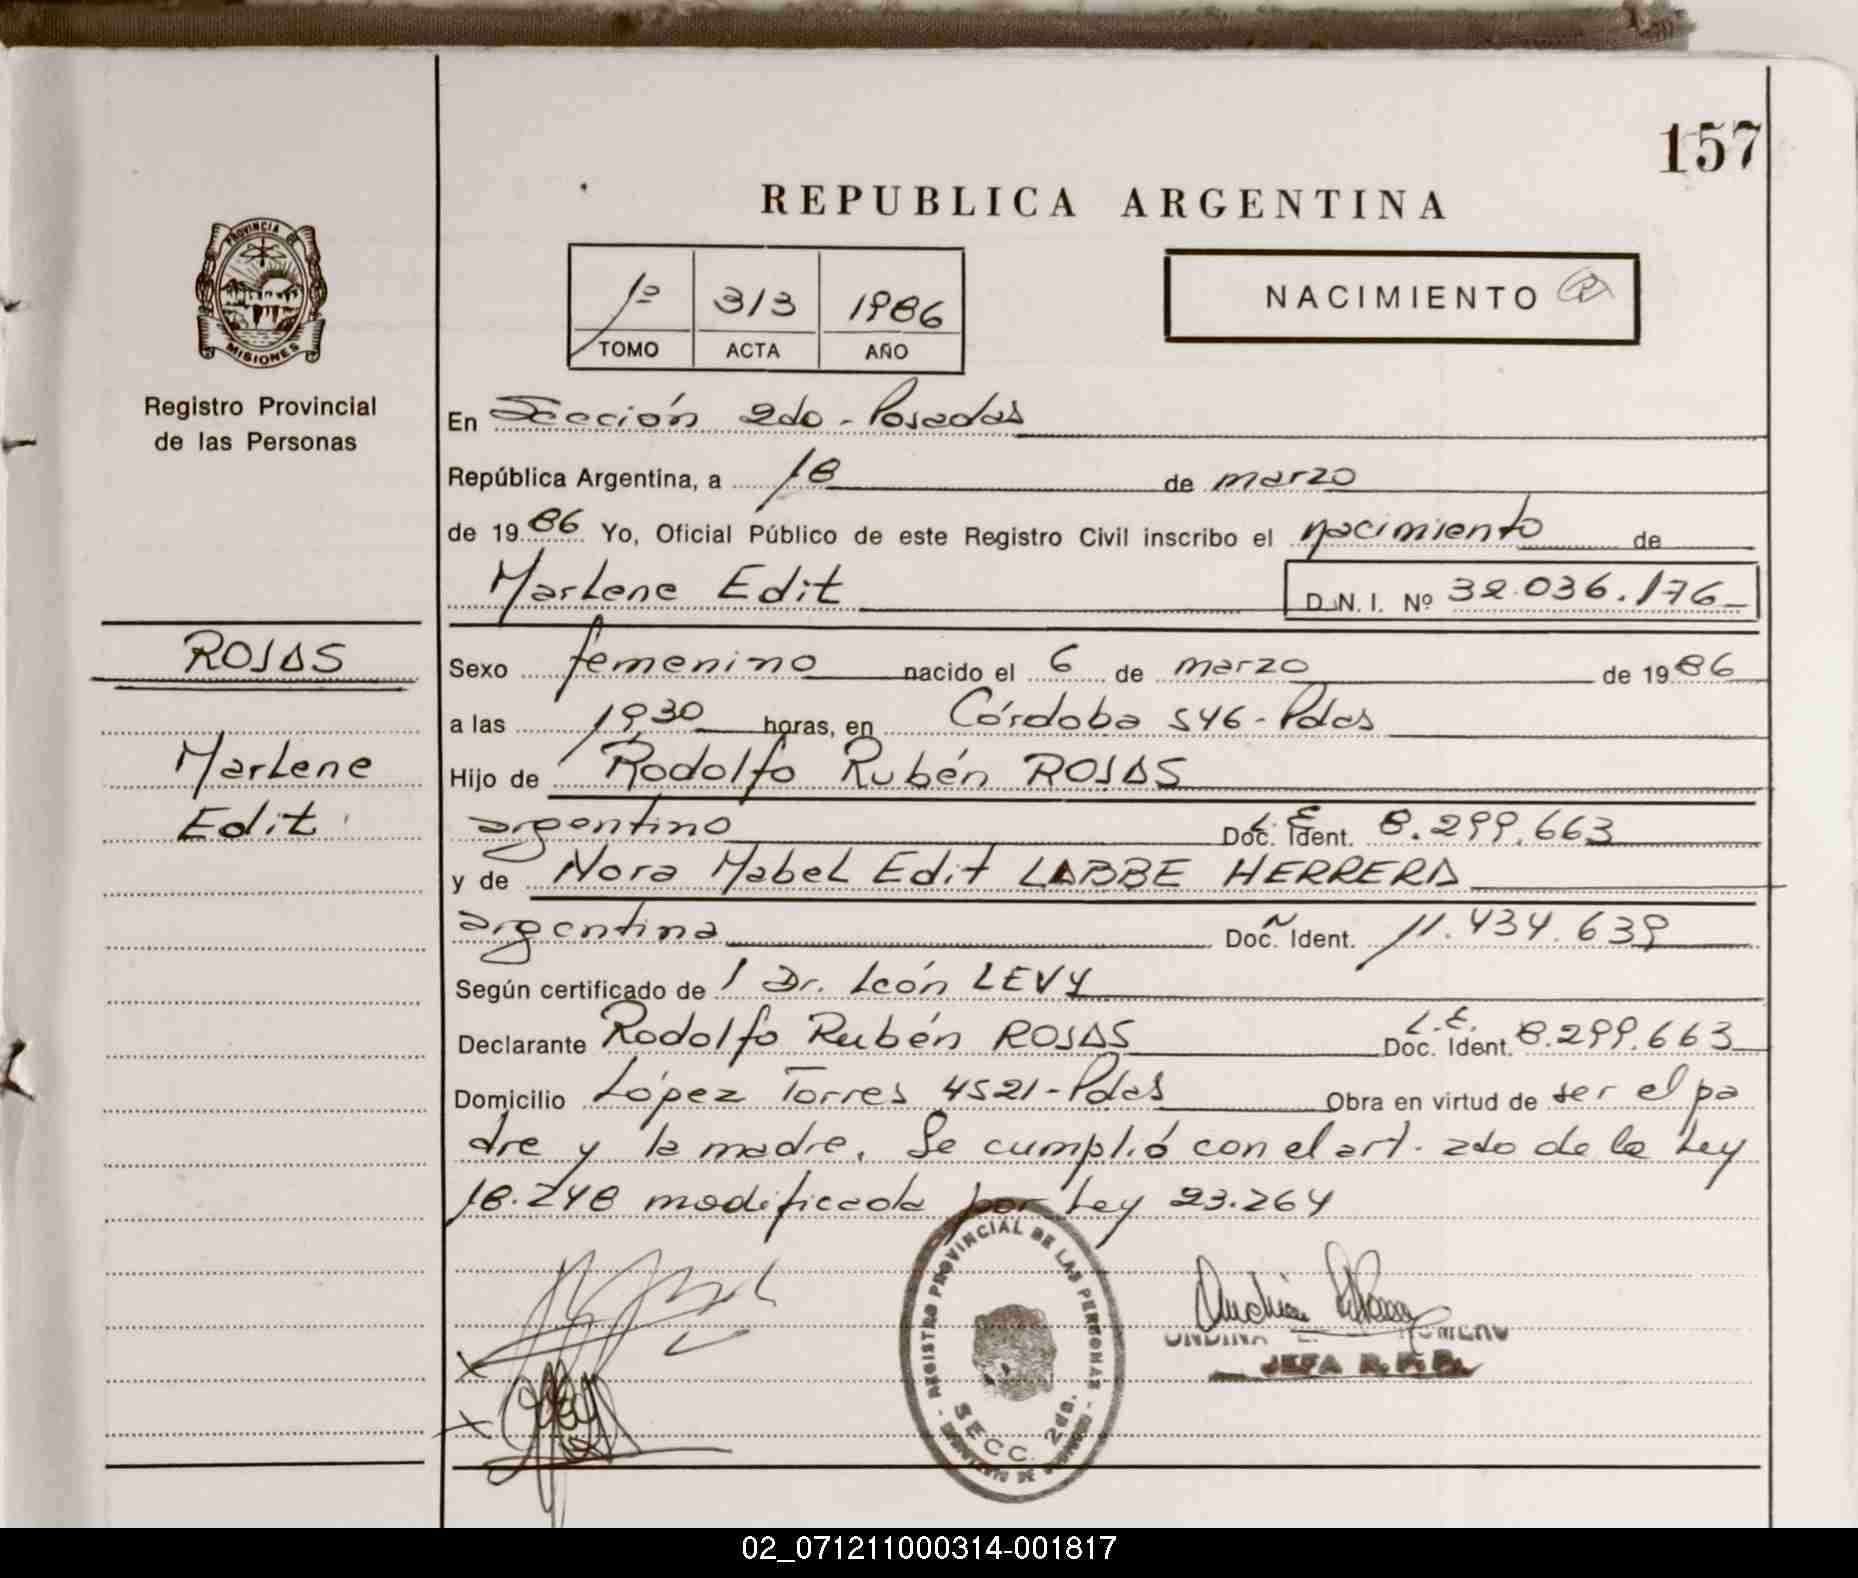 157
REPUBLICA ARGENTINA
PROVINCIA DE
MISIONES
Registro Provincial
de las Personas
1º 313 1986
TOMO ACTA AÑO
NACIMIENTO
En Sección 2do - Posadas
República Argentina, a 18 de marzo
de 1986 Yo, Oficial Público de este Registro Civil inscribo el nacimiento de
Marlene Edit D.N.I. Nº 32.036.176
ROJAS
Marlene
Edit
Sexo femenino nacido el 6 de marzo de 1986
a las 19,30 horas, en Córdoba 546 - Pdas
Hijo de Rodolfo Rubén ROJAS
argentino L.E. Doc. Ident. 8.299.663
y de Nora Mabel Edit LABBE HERRERA
argentina Doc. Ident. 11.434.639
Según certificado de 1 Dr. León LEVY
Declarante Rodolfo Rubén ROJAS L.E. Doc. Ident. 8.299.663
Domicilio López Torres 4521 - Pdas Obra en virtud de ser el pa
dre y la madre. Se cumplió con el art. 2do de la Ley
18.248 modificada por Ley 23.264
REGISTRO PROVINCIAL DE LAS PERSONAS
SECC. 2da.
JEFA R.P.P.
02_071211000314-001817